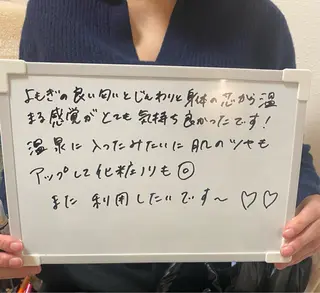 よもぎの良い匂いとじんわりと身体の芯から温
まる感覚がとても気持ち良かったです!
温泉に入ったみたいに肌のツヤも
アップして化粧ノリも◎
また利用したいです〜 ♡♡